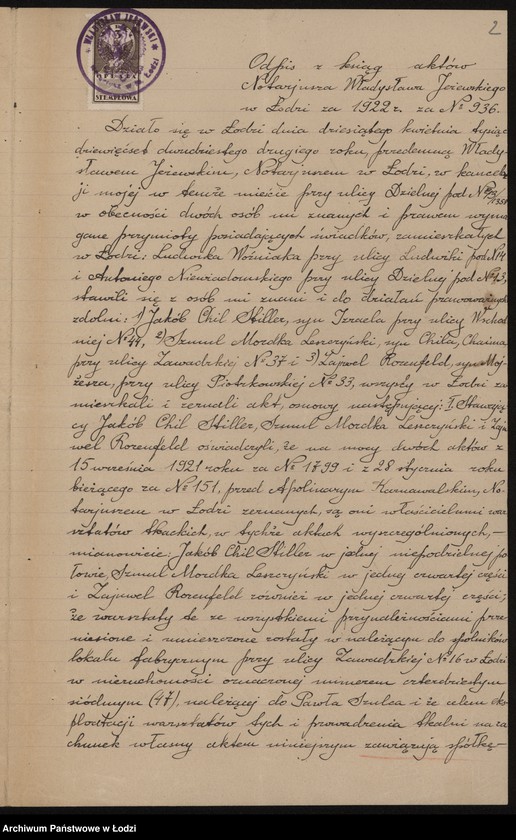 2
WŁADYSŁAW JEŻEWSKI
w Łodzi
STEMPLOWA
Odpis z ksiąg aktów
Notarjusza Władysława Jeżewskiego
w Łodzi za 1922 r. za № 936.
Działo się w Łodzi dnia dziesiątego kwietnia tysiąc
dziewięćset dwudziestego drugiego roku, przedemną Włady-
sławem Jeżewskim, Notarjuszem w Łodzi, w kancela-
rji mojej w temże mieście przy ulicy Dzielnej pod №
w obecności dwóch osób mi znanych i prawem wyma-
gane przymioty posiadających świadków, zamieszkałych
w Łodzi: Ludwika Woźniaka przy ulicy Ludwiki pod № 14
i Antoniego Niewiadomskiego przy ulicy Dzielnej pod № 43,
stawili się z osób mi znani i do działań prawoważnych
zdolni: 1) Jakób Chil Stiller, syn Izraela przy ulicy Wschod-
niej № 44, 2) Szmul Mordka Lenczyński, syn Chila, Chaima
przy ulicy Zawadzkiej № 37 i 3) Zajwel Rozenfeld, syn Moj-
żesza, przy ulicy Piotrkowskiej № 33, wszyscy w Łodzi za-
mieszkali i zeznali akt, osnowy następującej: I. Stawają-
cy Jakób Chil Stiller, Szmul Mordka Lenczyński i Zaj-
wel Rozenfeld oświadczyli, że na mocy dwóch aktów z
15 września 1921 roku za № 1799 i z 28 stycznia roku
bieżącego za № 151, przed Apolinarym Karnawalskim, No-
tarjuszem w Łodzi zeznanych, są oni właścicielami war-
sztatów tkackich, w tychże aktach wyszczególnionych,—
mianowicie: Jakób Chil Stiller w jednej niepodzielnej po-
łowie, Szmul Mordka Lenczyński w jednej czwartej części
i Zajwel Rozenfeld również w jednej czwartej części;
że warsztaty te ze wszystkiemi przynależnościami prze-
niesione i umieszczone zostały w należącym do spólników
lokalu fabrycznym przy ulicy Zawadzkiej № 16 w Łodzi
w nieruchomości oznaczonej numerem czterdziestym
siódmym (47), należącej do Pawła Szulca i że celem eks-
ploatacji warsztatów tych i prowadzenia tkalni na ra-
chunek własny aktem niniejszym zawiązują spółkę—
Archiwum Państwowe w Łodzi